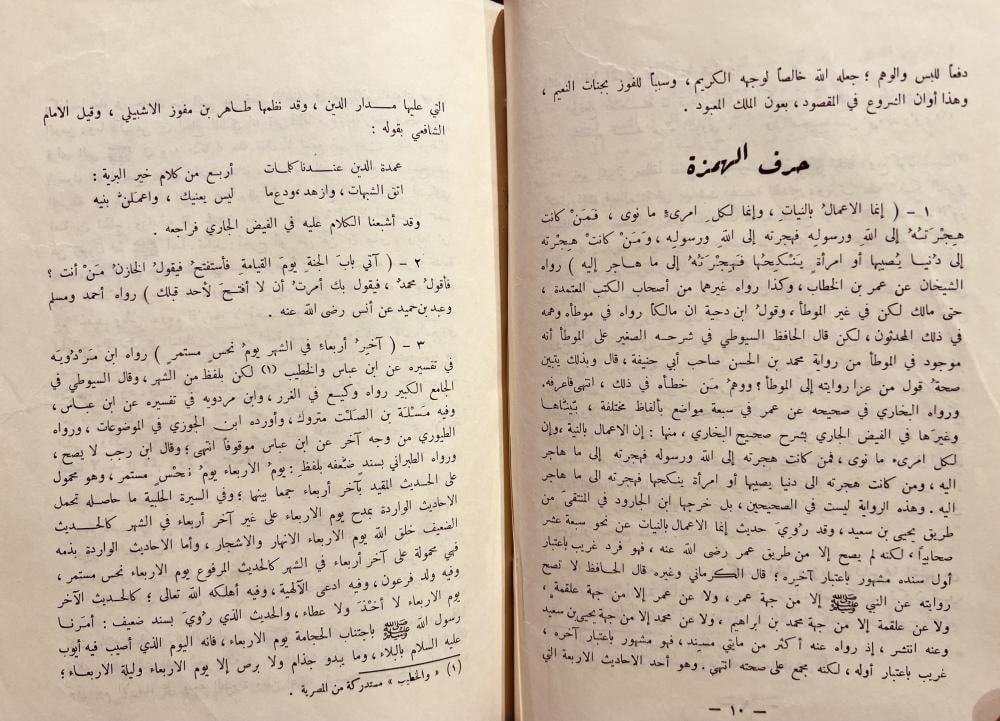 دفعاً للبس والوهم ؛ جعله الله خالصاً لوجهه الكريم ، وسبباً للفوز بجنات النعيم ،
وهذا أوان الشروع في المقصود ، بعون الملك المعبود .
حرف الهمزة
١ - ( إنما الاعمالُ بالنياتِ ، وإنما لكلِ امرىءٍ ما نوى ، فمَنْ كانت
هِجْرَتُهُ إلى اللهِ ورسولِهِ فهجرته إلى اللهِ ورسولِه ، ومَنْ كانت هِجرته
إلى دُنيا يُصيبُها أو امرأةٍ يَنْكِحُها فهِجْرَتُهُ إلى ما هاجر إليه ) رواه
الشيخان عن عمر بن الخطاب ، وكذا رواه غيرهما من أصحاب الكتب المعتمدة ،
حتى مالك لكن في غير الموطأ ، وقولُ ابن دحية ان مالكاً رواه في موطأه وهمه
في ذلك المحدثون ، لكن قال الحافظ السيوطي في شرحه الصغير على الموطأ أنه
موجود في الموطأ من رواية محمد بن الحسن صاحب أبي حنيفة ، قال وبذلك يتبين
صحةُ قول من عزا روايته إلى الموطأ ؟ ووهمُ مَن خطأه في ذلك ، انتهى فاعرفه.
ورواه البخاري في صحيحه عن عمر في سبعة مواضع بألفاظ مختلفة ، بَيَّنّاها
وغيرَها في الفيض الجاري بشرح صحيح البخاري ، منها : إن الاعمال بالنية ، وإن
لكل امرىء ما نوى ، فمن كانت هجرته إلى الله ورسوله فهجرته إلى ما هاجر
اليه ، ومن كانت هجرته الى دنيا يصيبها أو امرأة ينكحها فهجرته الى ما هاجر
اليه . وهذه الرواية ليست في الصحيحين ، بل خرجها ابن الجارود في المنتقى من
طريق يحيى بن سعيد ، وقد رُويَ حديث إنما الاعمال بالنيات عن نحو سبعة عشر
صحابياً ، لكنه لم يصح إلا من طريق عمر رضى الله عنه ، فهو فرد غريب باعتبار
أول سنده مشهور باعتبار آخيره ؛ قال الكرماني وغيره قال الحافظ لا تصح
روايته عن النبي ﷺ إلا من جهة عمر ، ولا عن عمر إلا من جهة علقمة ،
ولا عن علقمة إلا من جهة محمد بن ابراهيم ، ولا عن محمد إلا من جهة يحيى بن سعيد
وعنه انتشر ، إذ رواه عنه أكثر من مايتي مسيند ، فهو مشهور باعتبار آخره ،
غريب باعتبار أوله ، لكنه مجمع على صحته انتهي . وهو أحد الاحاديث الاربعة التي
— ١٠ —
التي عليها مدار الدين ، وقد نظمها طاهر بن مفوز الاشبيلي ، وقيل الامام
الشافعي بقوله :
عمدة الدين عندنا كلمات أربع من كلام خير البرية :
اتق الشبهات ، وازهد ، ودع ما ليس يعنيك ، واعملنْ بنيه
وقد أشبعنا الكلام عليه في الفيض الجاري فراجعه .
٢ - ( آتي بابَ الجنةِ يومَ القيامةِ فأستفتحُ فيقولُ الخازنُ مَنْ أنت ؟
فأقولُ محمدُ ، فيقول بك أمرتُ أن لا أفتحَ لأحد قبلك ) رواه أحمد ومسلم
وعبد بن حميد عن أنس رضى الله عنه .
٣ - ( آخيرُ أربعاءٍ في الشهر يومُ نحسٍ مستمرٍ ) رواه ابن مَرْدُويَه
في تفسيره عن ابن عباس والخطيب (١) لكن بلفظ من الشهر ، وقال السيوطي في
الجامع الكبير رواه وكيع في الغرر ، وابن مردويه في تفسيره عن ابن عباس ،
وفيه مَسْلمة بن الصلْت متروك ، وأورده ابن الجوزي في الموضوعات ، ورواه
الطيوري من وجه آخر عن ابن عباس موقوفاً انتهى ؛ وقال ابن رجب لا يصح ،
ورواه الطبراني بسند ضعّفه بلفظ : يومُ الاربعاء يومُ نحْسٍ مستمر ، وهو محمول
على الحديث المقيد بآخر أربعاء جمعا بينها ؛ وفي السيرة الحلبية ما حاصله تحمل
الاحاديث الواردة بمدح يوم الاربعاء على غير آخر أربعاء في الشهر كالحديث
الضعيف خلق الله يوم الاربعاء الانهار والاشجار ، وأما الاحاديث الواردة بذمه
فهي محمولة على آخر أربعاء في الشهر كالحديث المرفوع يوم الاربعاء نحس مستمر ،
وفيه ولد فرعون ، وفيه ادعى الآلهية ، وفيه أهلكه الله تعالى ؛ كالحديث الآخر
يوم الاربعاء لا أخْذَ ولا عطاء ، والحديث الذي رُويَ بسند ضعيف : أمَرَنا
رسول الله ﷺ باجتناب الحجامة يوم الاربعاء ، فانه اليوم الذي أصيب فيه أيوب
عليه السلام بالبلاء ، وما يبدو جذام ولا برص إلا يوم الاربعاء وليلة الاربعاء ؛
(١) « والخطيب » مستدركة من المصرية .